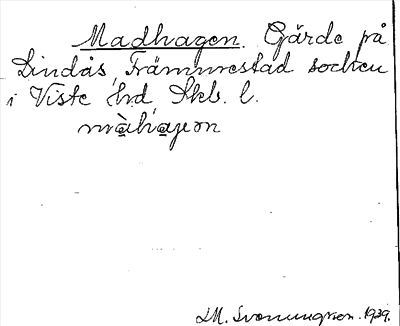 Madhagen. Gärde på
Lindås, Främmestad socken
i Viste hd, Skbs. l.
màhagen
LM. Svenungsson. 1939.